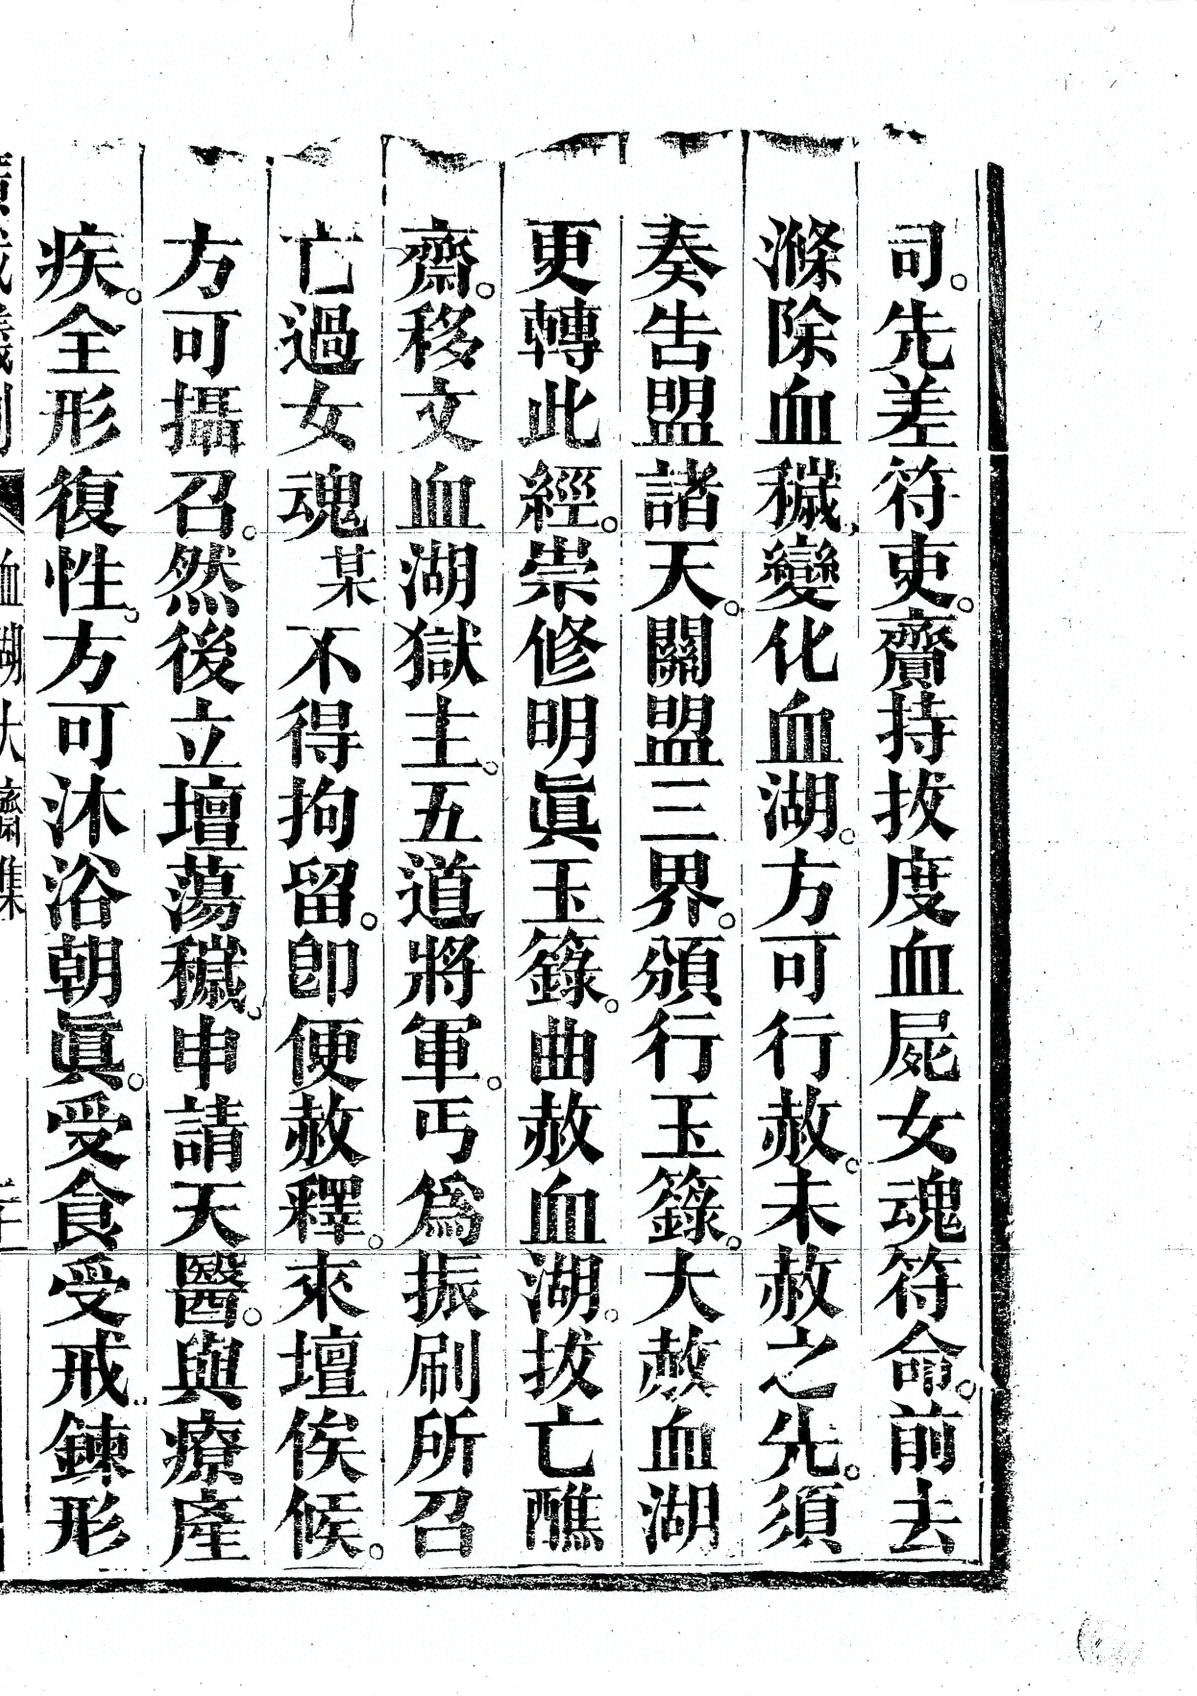 司。先差符吏。齎持拔度血屍女魂符命。前去
滌除血穢、變化血湖。方可行赦。未赦之先。須
奏告盟諸天。關盟三界。頒行玉籙。大赦血湖
更轉此經。崇修明眞玉籙。曲赦血湖。拔亡醮
齋。移文血湖獄主。五道將軍。丐爲振刷所召
亡過女魂某不得拘留。卽便赦釋。來壇俟候。
方可攝召。然後立壇蕩穢、申請天醫。與療產
疾。全形復性。方可沐浴朝眞。受食受戒鍊形
血湖大齋集